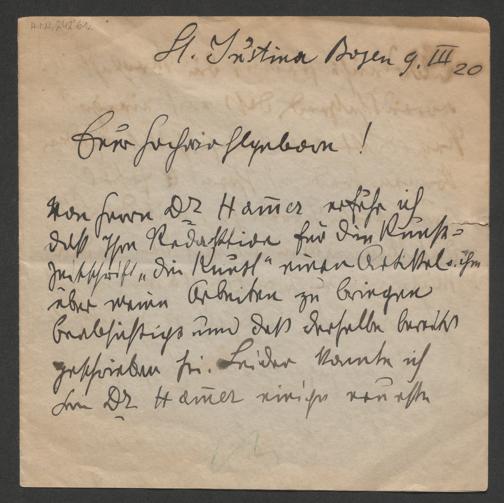 St. Justina Bozen 9. III 20
Euer Hochwohlgeboren!
Von Herrn Dr Ham̅er erfuhr ich
daß Ihre Redacktion für die Kunst=
zeitschrift „die Kunst" einen Artikkel
über meine Arbeiten zu bringen
beabsichtigt und daß derselbe bereits
geschrieben sei. Leider konnte ich
Dr Ham̅er einige neueste